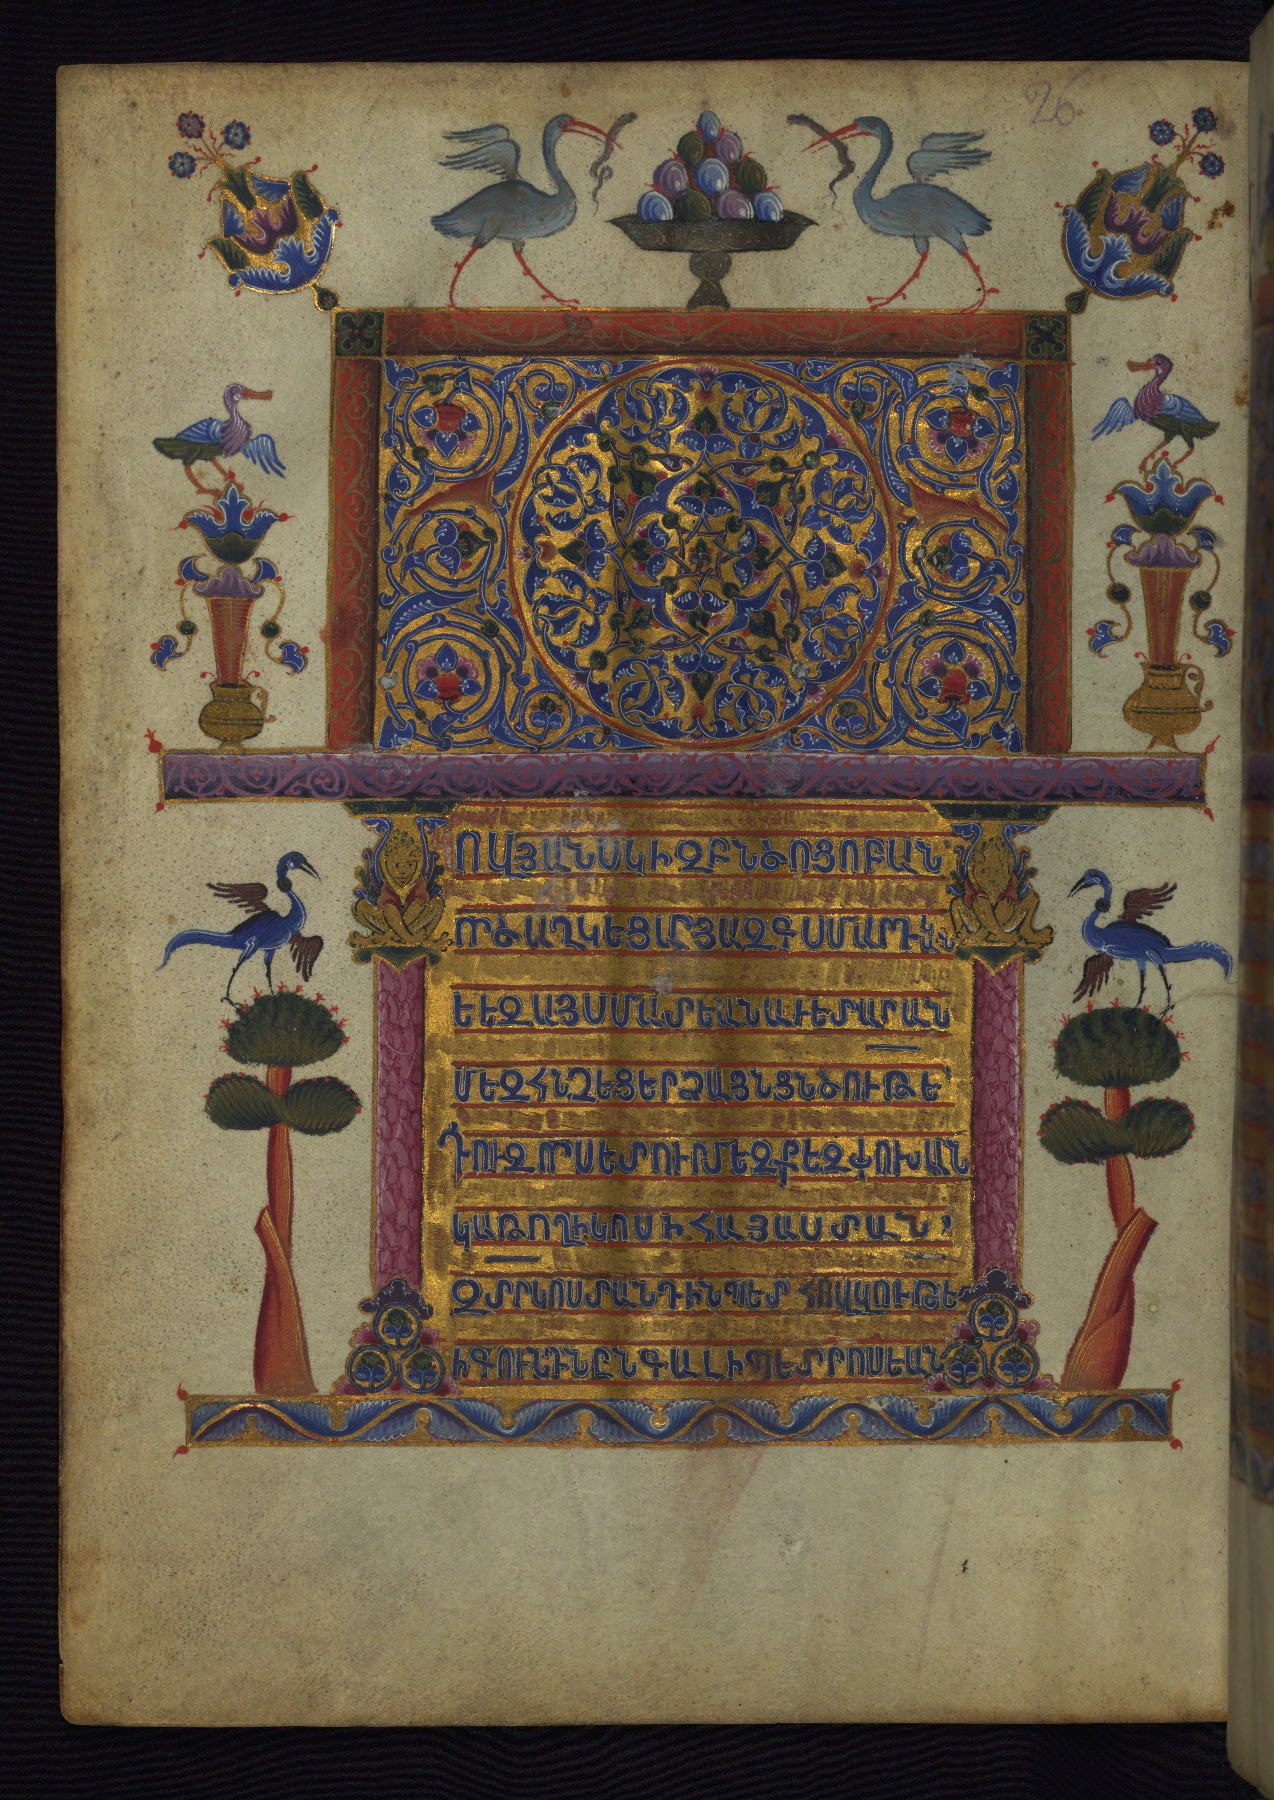 26
ՈՎ ՅԱՆՍԿԻԶԲՆ ԾՈՑՈ ԲԱՆ՝
ՈՐ ԾԱՂԿԵՑԱՐ ՅԱԶԳՍ ՄԱՐԴԿԱՆ
ԶԱՅՍ ՄԱՏԵԱՆ ԱՒԵՏԱՐԱՆ
ՄԵԶ ՀՆՉԵՑԵՐ ՁԱՅՆ ՑՆԾՈՒԹԵ՝
ԴՈՒ ԶՈՐՍ ԵՏՈՒՐ ՄԵԶ ՔԵԶ ՓՈԽԱՆ
ԿԱԹՈՂԻԿՈՍԻ ՀԱՅԱՍՏԱՆ՝
ԶՏՐ ԿՈՍՏԱՆԴԻՆ ՊԵՏ ՀՈՎՎՈՒԹԵ
Ի ԳՈՒՆԴՆ ԸՆԳԱԼ Ի ՊԵՏՐՈՍԵԱՆ